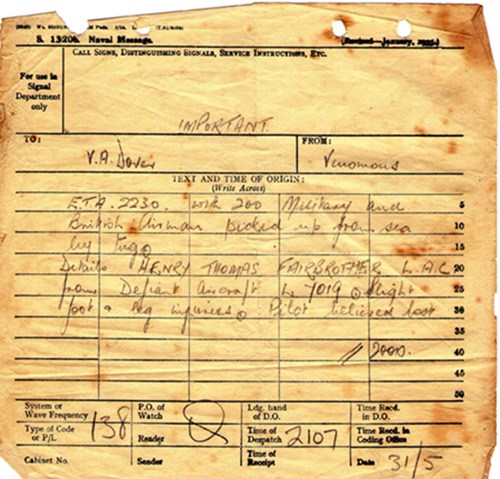 S. 1320b. Naval Message.
(Revised—January,
CALL SIGNS, DISTINGUISHING SIGNALS, SERVICE INSTRUCTIONS, ETC.
For use in
Signal
Department
only
IMPORTANT
TO: FROM:
V.A. Dover Venomous
TEXT AND TIME OF ORIGIN:
(Write Across)
E.T.A. 2230. with 200 Military and 5
British Airman picked up from sea 10
by tug 15
Details HENRY THOMAS FAIRBROTHER L.A.C 20
from Defiant Aircraft L 7019 slight 25
foot & leg injuries Pilot believed lost 30
35
// 2000. 40
45
50
System or P.O. of Ldg. hand Time Recd.
Wave Frequency Watch of D.O. in D.O.
Type of Code 138 Reader Time of 2107 Time Recd. in
or P/L Despatch Coding Office
Cabinet No. Sender Time of Date 31/5
Receipt